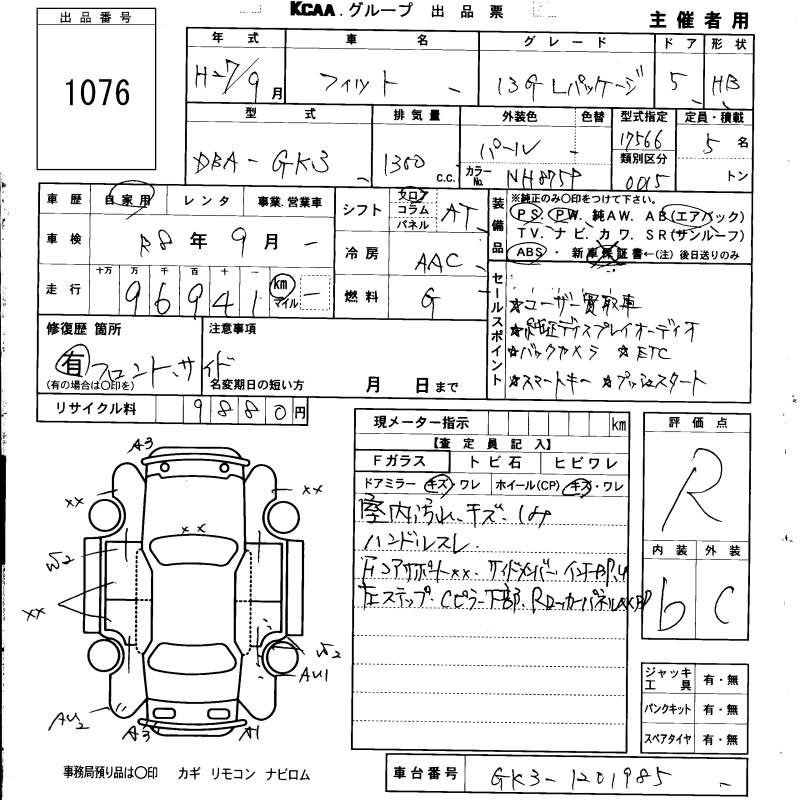 KCAA.グループ 出品票
主催者用
出品番号
1076
年式 車名 グレード ドア 形状
H27/9月 フィット - 13G Lパッケージ 5 - HB
型式 排気量 外装色 色替 型式指定 定員・積載
DBA-GK3 1300 c.c. パール - 17566 5名
カラーNo. NH875P 類別区分 0015 トン
車歴 自家用 レンタ 事業.営業車
シフト フロア コラム パネル AT
装備品 ※純正のみ〇印をつけて下さい。
PS PW. 純AW. AB(エアバック)
TV. ナビ. カワ. SR(サンルーフ)
ABS・ 新車保証書←(注)後日送りのみ
車検 R8年9月 -
冷房 AAC
走行 十万 万 千 百 十 一
96941 km マイル -
燃料 G
セールスポイント
☆ユーザー買取車
☆純正ディスプレイオーディオ
☆バックカメラ ☆ETC
☆スマートキー ☆プッシュスタート
修復歴 箇所 注意事項
有 フロント、サイド
(有の場合は〇印を) 名変期日の短い方 月 日まで
リサイクル料 9880円
現メーター指示 km
【査定員記入】
Fガラス トビ石 ヒビワレ
ドアミラー キズ・ワレ ホイール(CP) キズ・ワレ
室内汚れ、キズ、シミ
ハンドルスレ.
左ステップ・Cピラー下部.
評価点
R
内装 外装
b C
A3
xx xx
xx
W2
xx
W2
AU1
AU2
A3 A1
ジャッキ 工具 有・無
パンクキット 有・無
スペアタイヤ 有・無
事務局預り品は〇印 カギ リモコン ナビロム
車台番号 GK3-1201985 -